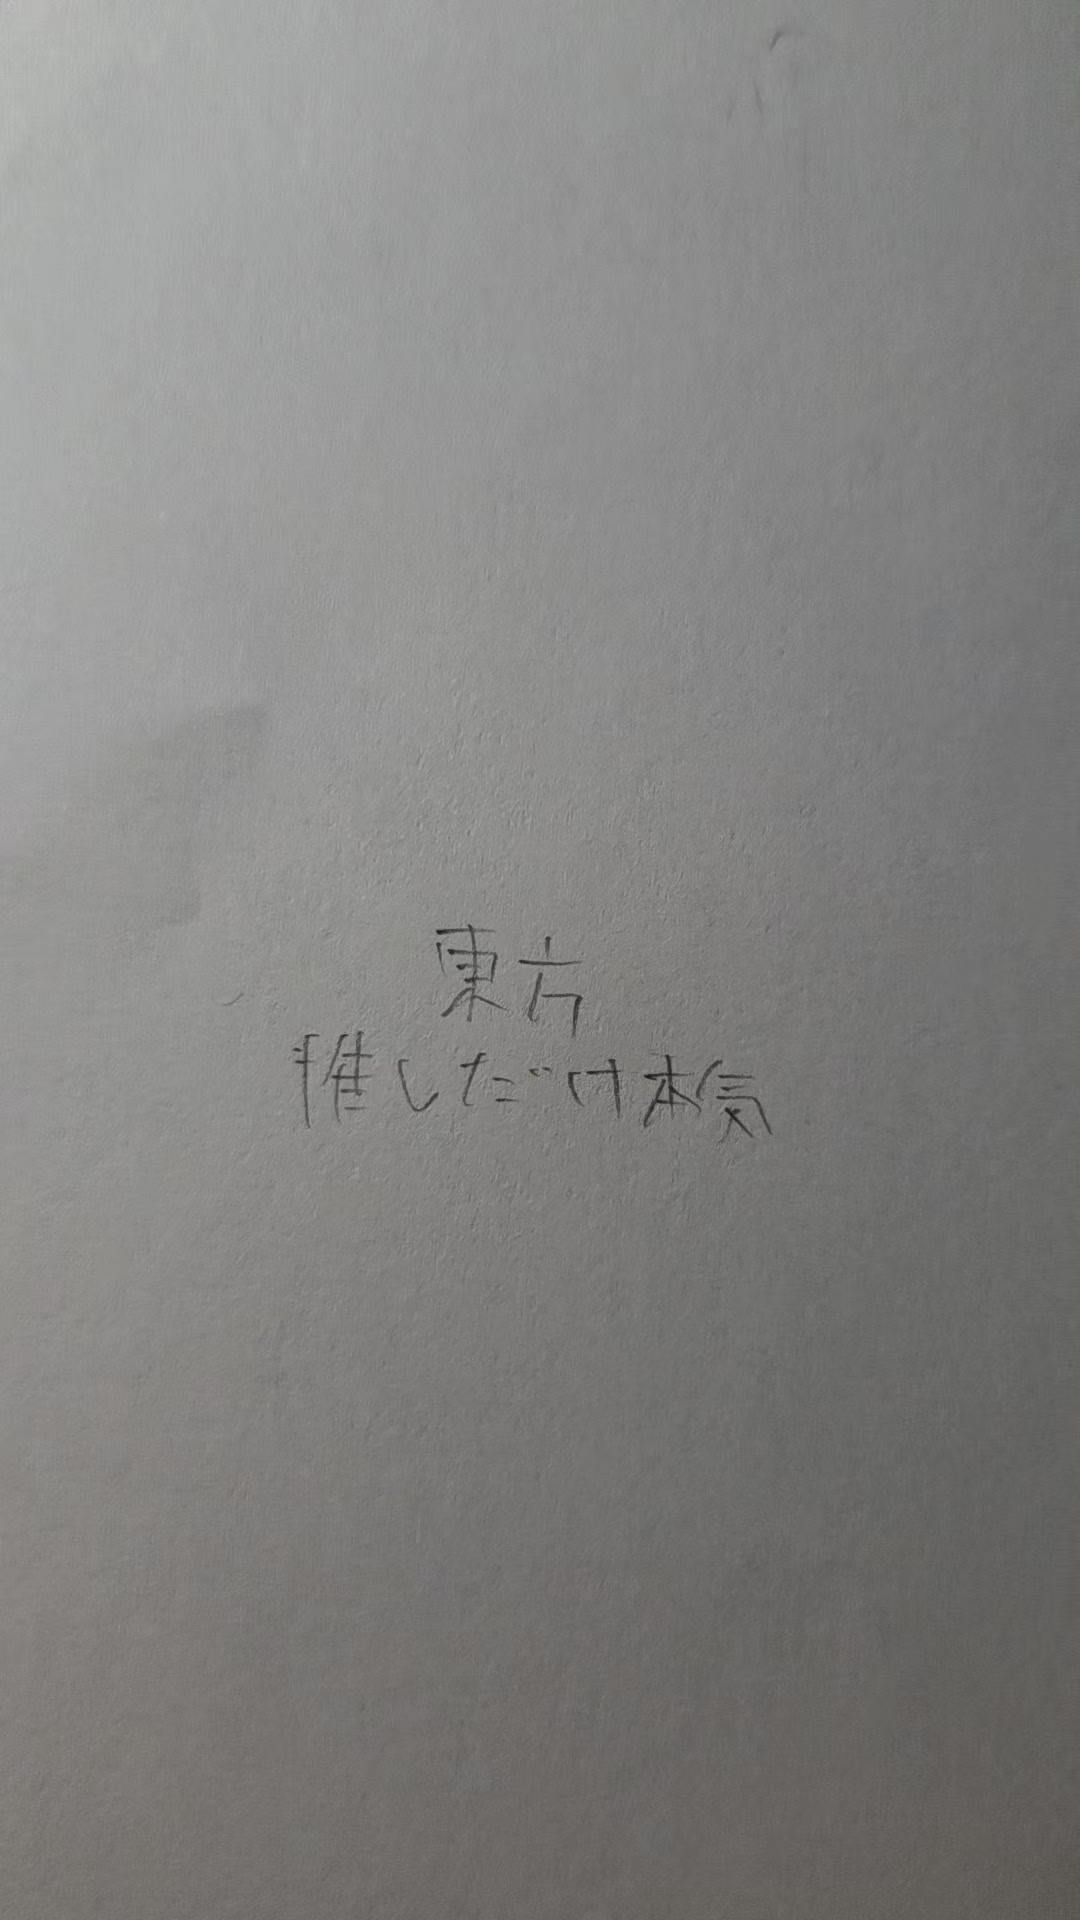 東方
推しだけ本気